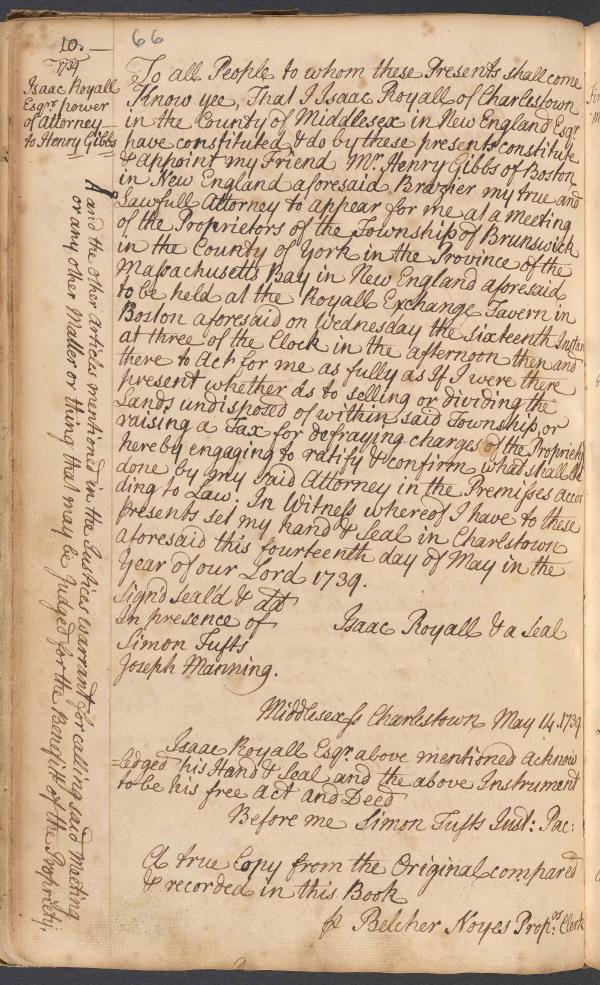 10.
66
1739
Isaac Royall
Esqr. power
of Attorney
to Henry Gibbs
To all People to whom these Presents shall come
Know yee, That I Isaac Royall of Charlestown
in the County of Middlesex in New England Esqr.
have constituted & do by these presents constitute
& appoint my Friend Mr. Henry Gibbs of Boston
in New England aforesaid Brazier my true and
Lawfull Attorney to appear for me at a meeting
of the Proprietors of the Township of Brunswick
in the County of York in the Province of the
Massachusetts Bay in New England aforesaid
to be held at the Royall Exchange Tavern in
Boston aforesaid on Wednesday the sixteenth Instan
at three of the Clock in the afternoon then and
there to Act for me as fully as If I were there
present whether as to selling or dividing the
Lands undisposed of within said Township, or
raising a Tax for defraying charges of the Propriety
hereby engaging to ratify & confirm what shall be
done by my said Attorney in the Premisses accor
ding to Law. In Witness whereof I have to these
presents set my hand & Seal in Charlstown
aforesaid this fourteenth day of May in the
Year of our Lord 1739.
Signd Seald & dd
In presence of
Isaac Royall & a Seal
Simon Tufts
Joseph Manning.
and the other articles mentioned in the Justices warrant for calling said Meeting
or any other Matter or thing that may be Judged for the Benefitt of the Propriety.
Middlesex ss Charlestown May 14. 1739
Isaac Royall Esqr. above mentioned acknow
=ledged his Hand & Seal and the above Instrument
to be his free Act and Deed
Before me Simon Tufts Just: Pac:
A true Copy from the Original compared
& recorded in this Book
Belcher Noyes Prop.rs Clerk